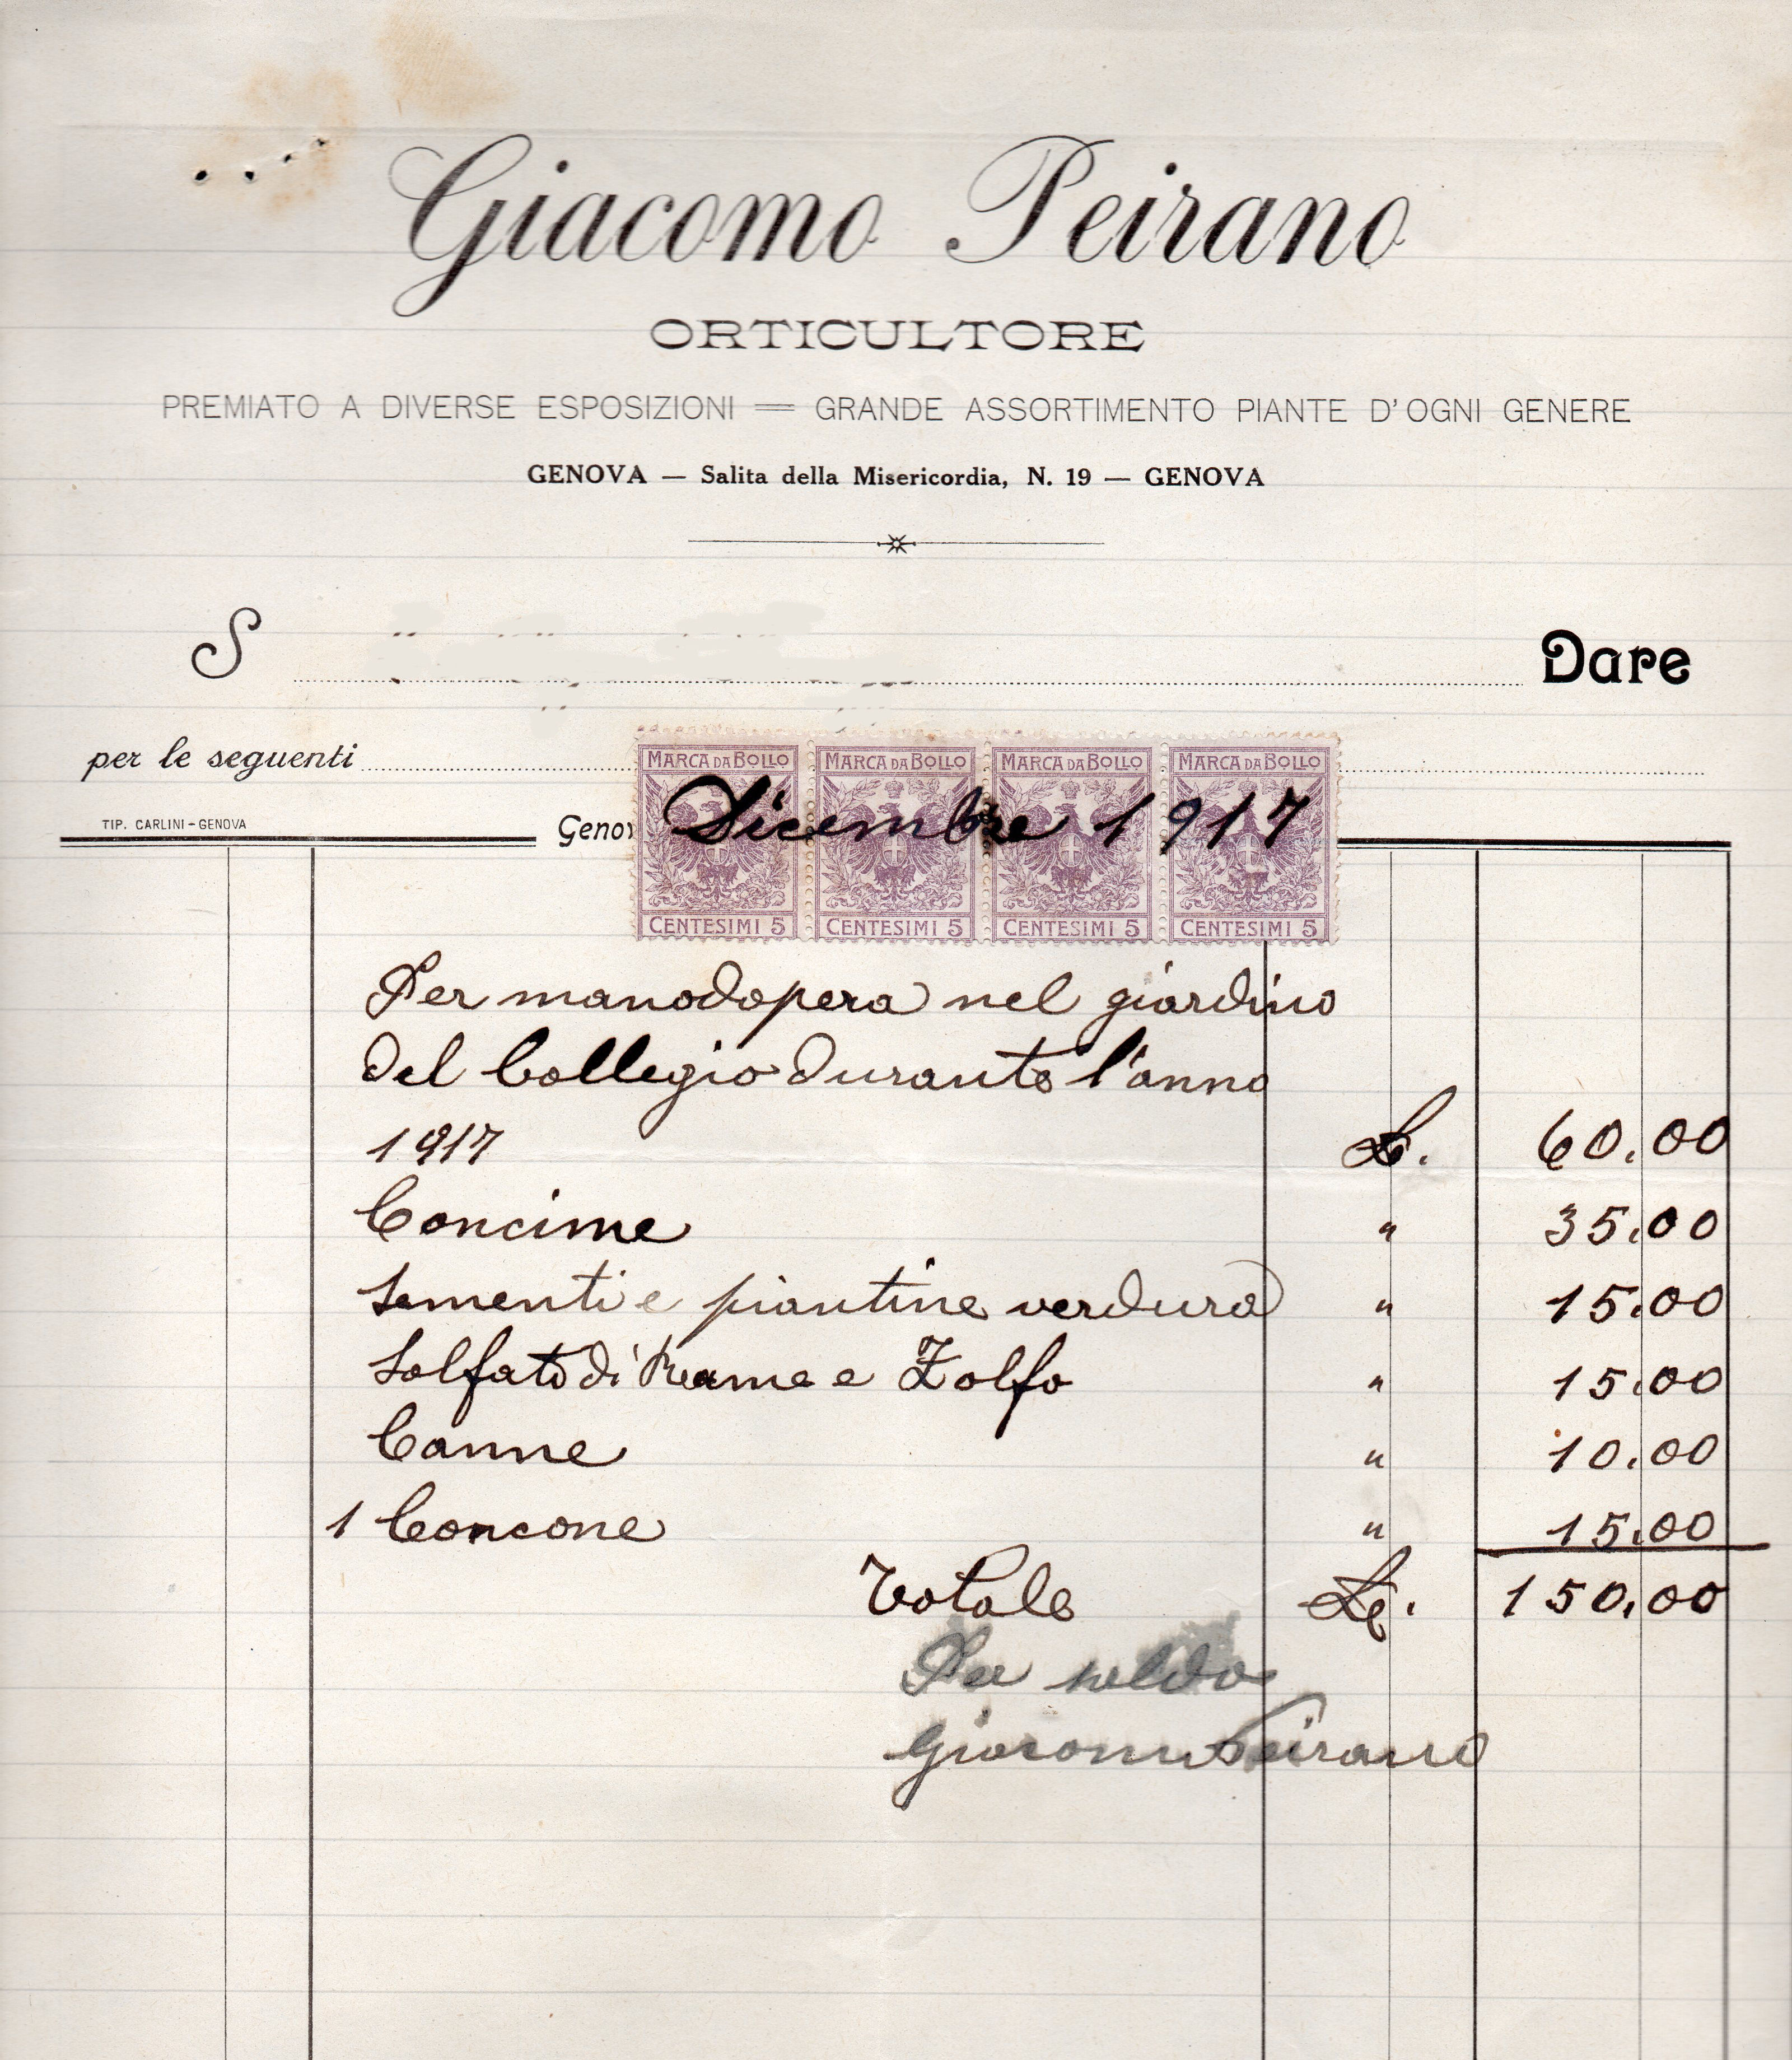 Giacomo Peirano
ORTICULTORE
PREMIATO A DIVERSE ESPOSIZIONI = GRANDE ASSORTIMENTO PIANTE D'OGNI GENERE
GENOVA — Salita della Misericordia, N. 19 — GENOVA
S Dare
per le seguenti
MARCA DA BOLLO MARCA DA BOLLO MARCA DA BOLLO MARCA DA BOLLO
TIP. CARLINI - GENOVA
Genov Dicembre 1917
CENTESIMI 5 CENTESIMI 5 CENTESIMI 5 CENTESIMI 5
Per manodopera nel giardino
del Collegio durante l'anno
1917 L. 60.00
Concime " 35.00
Sementi e piantine verdura " 15.00
Solfato di Rame e Zolfo " 15.00
Canne " 10.00
1 Concone " 15.00
Totale L. 150.00
Per saldo
Giacomo Peirano